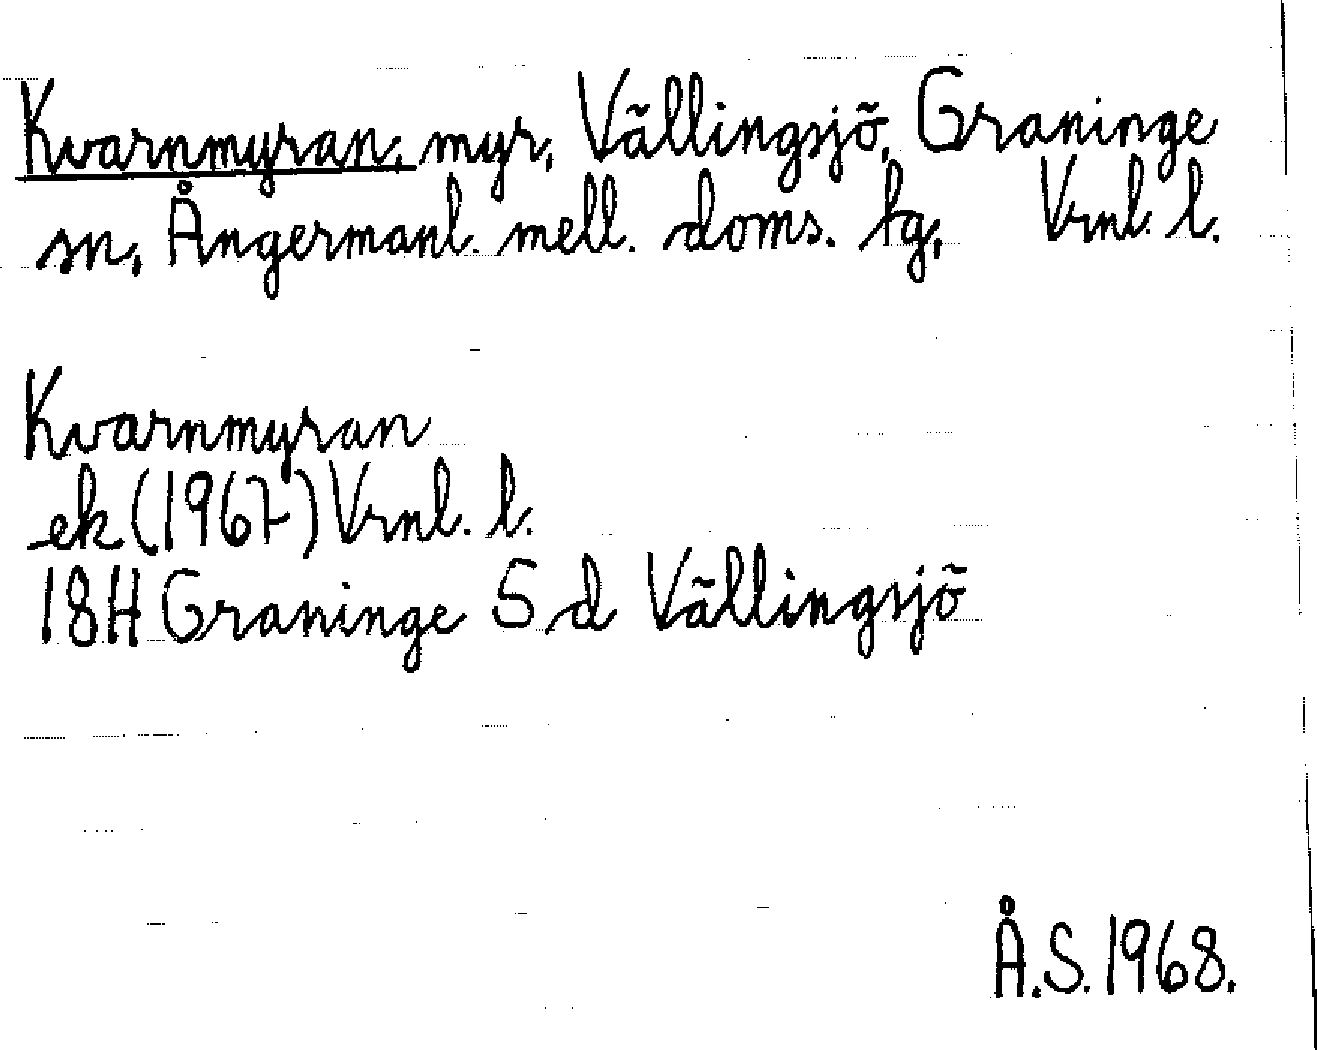 Kvarnmyran, myr, Vällingsjö, Graninge
sn, Ångermanl. mell. doms. tg, Vrnl. l.
Kvarnmyran
ek (1967) Vrnl. l.
18H Graninge 5 d Vällingsjö
Å.S. 1968.